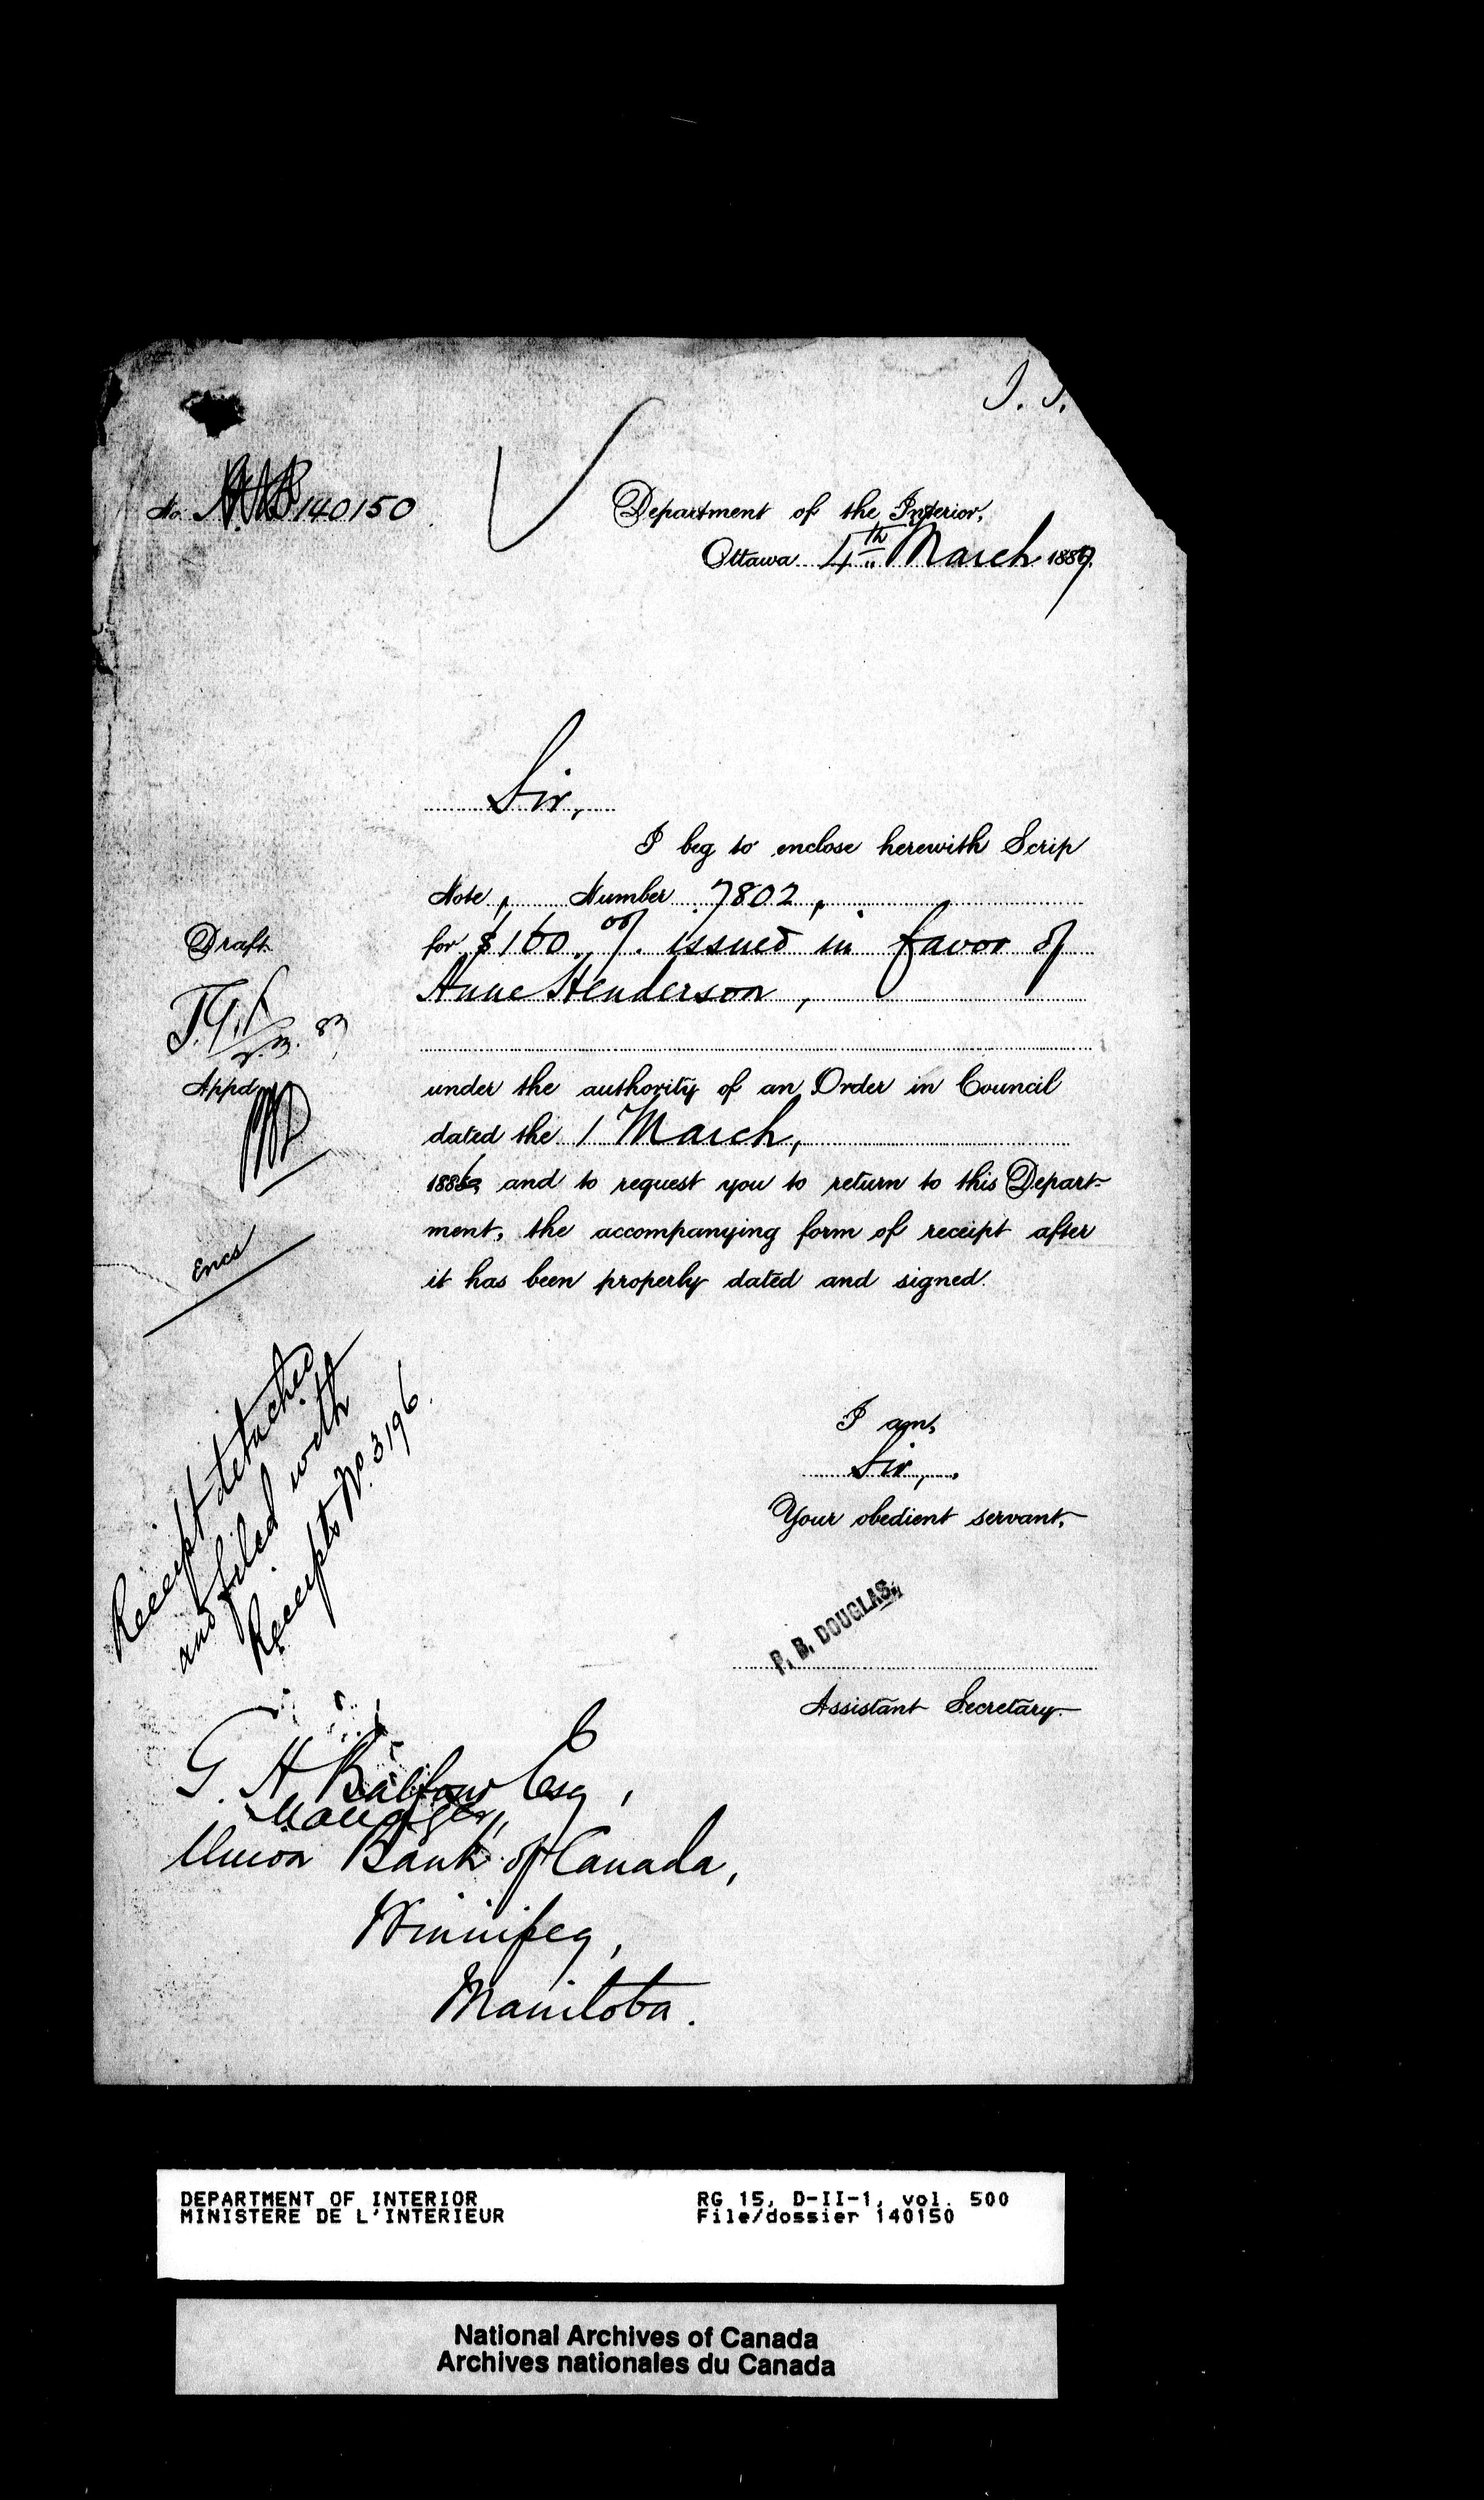 No. 140150
Department of the Interior,
Ottawa 4th March 1887.
Sir,
I beg to enclose herewith Scrip
Note, Number 7802,
for $160.00/. issued in favor of
Anne Henderson,
under the authority of an Order in Council
dated the 1 March,
1886, and to request you to return to this Depart-
ment, the accompanying form of receipt after
it has been properly dated and signed.
Draft
Appd
Encs
Receipt detached
and filed with
Receipts No. 3196.
I am,
Sir,
Your obedient servant,
P. B. DOUGLAS,
Assistant Secretary.
G. H. Balfour Esq,
Manager,
Union Bank of Canada,
Winnipeg,
Manitoba.
DEPARTMENT OF INTERIOR
MINISTERE DE L'INTERIEUR
RG 15, D-II-1, vol. 500
File/dossier 140150
National Archives of Canada
Archives nationales du Canada